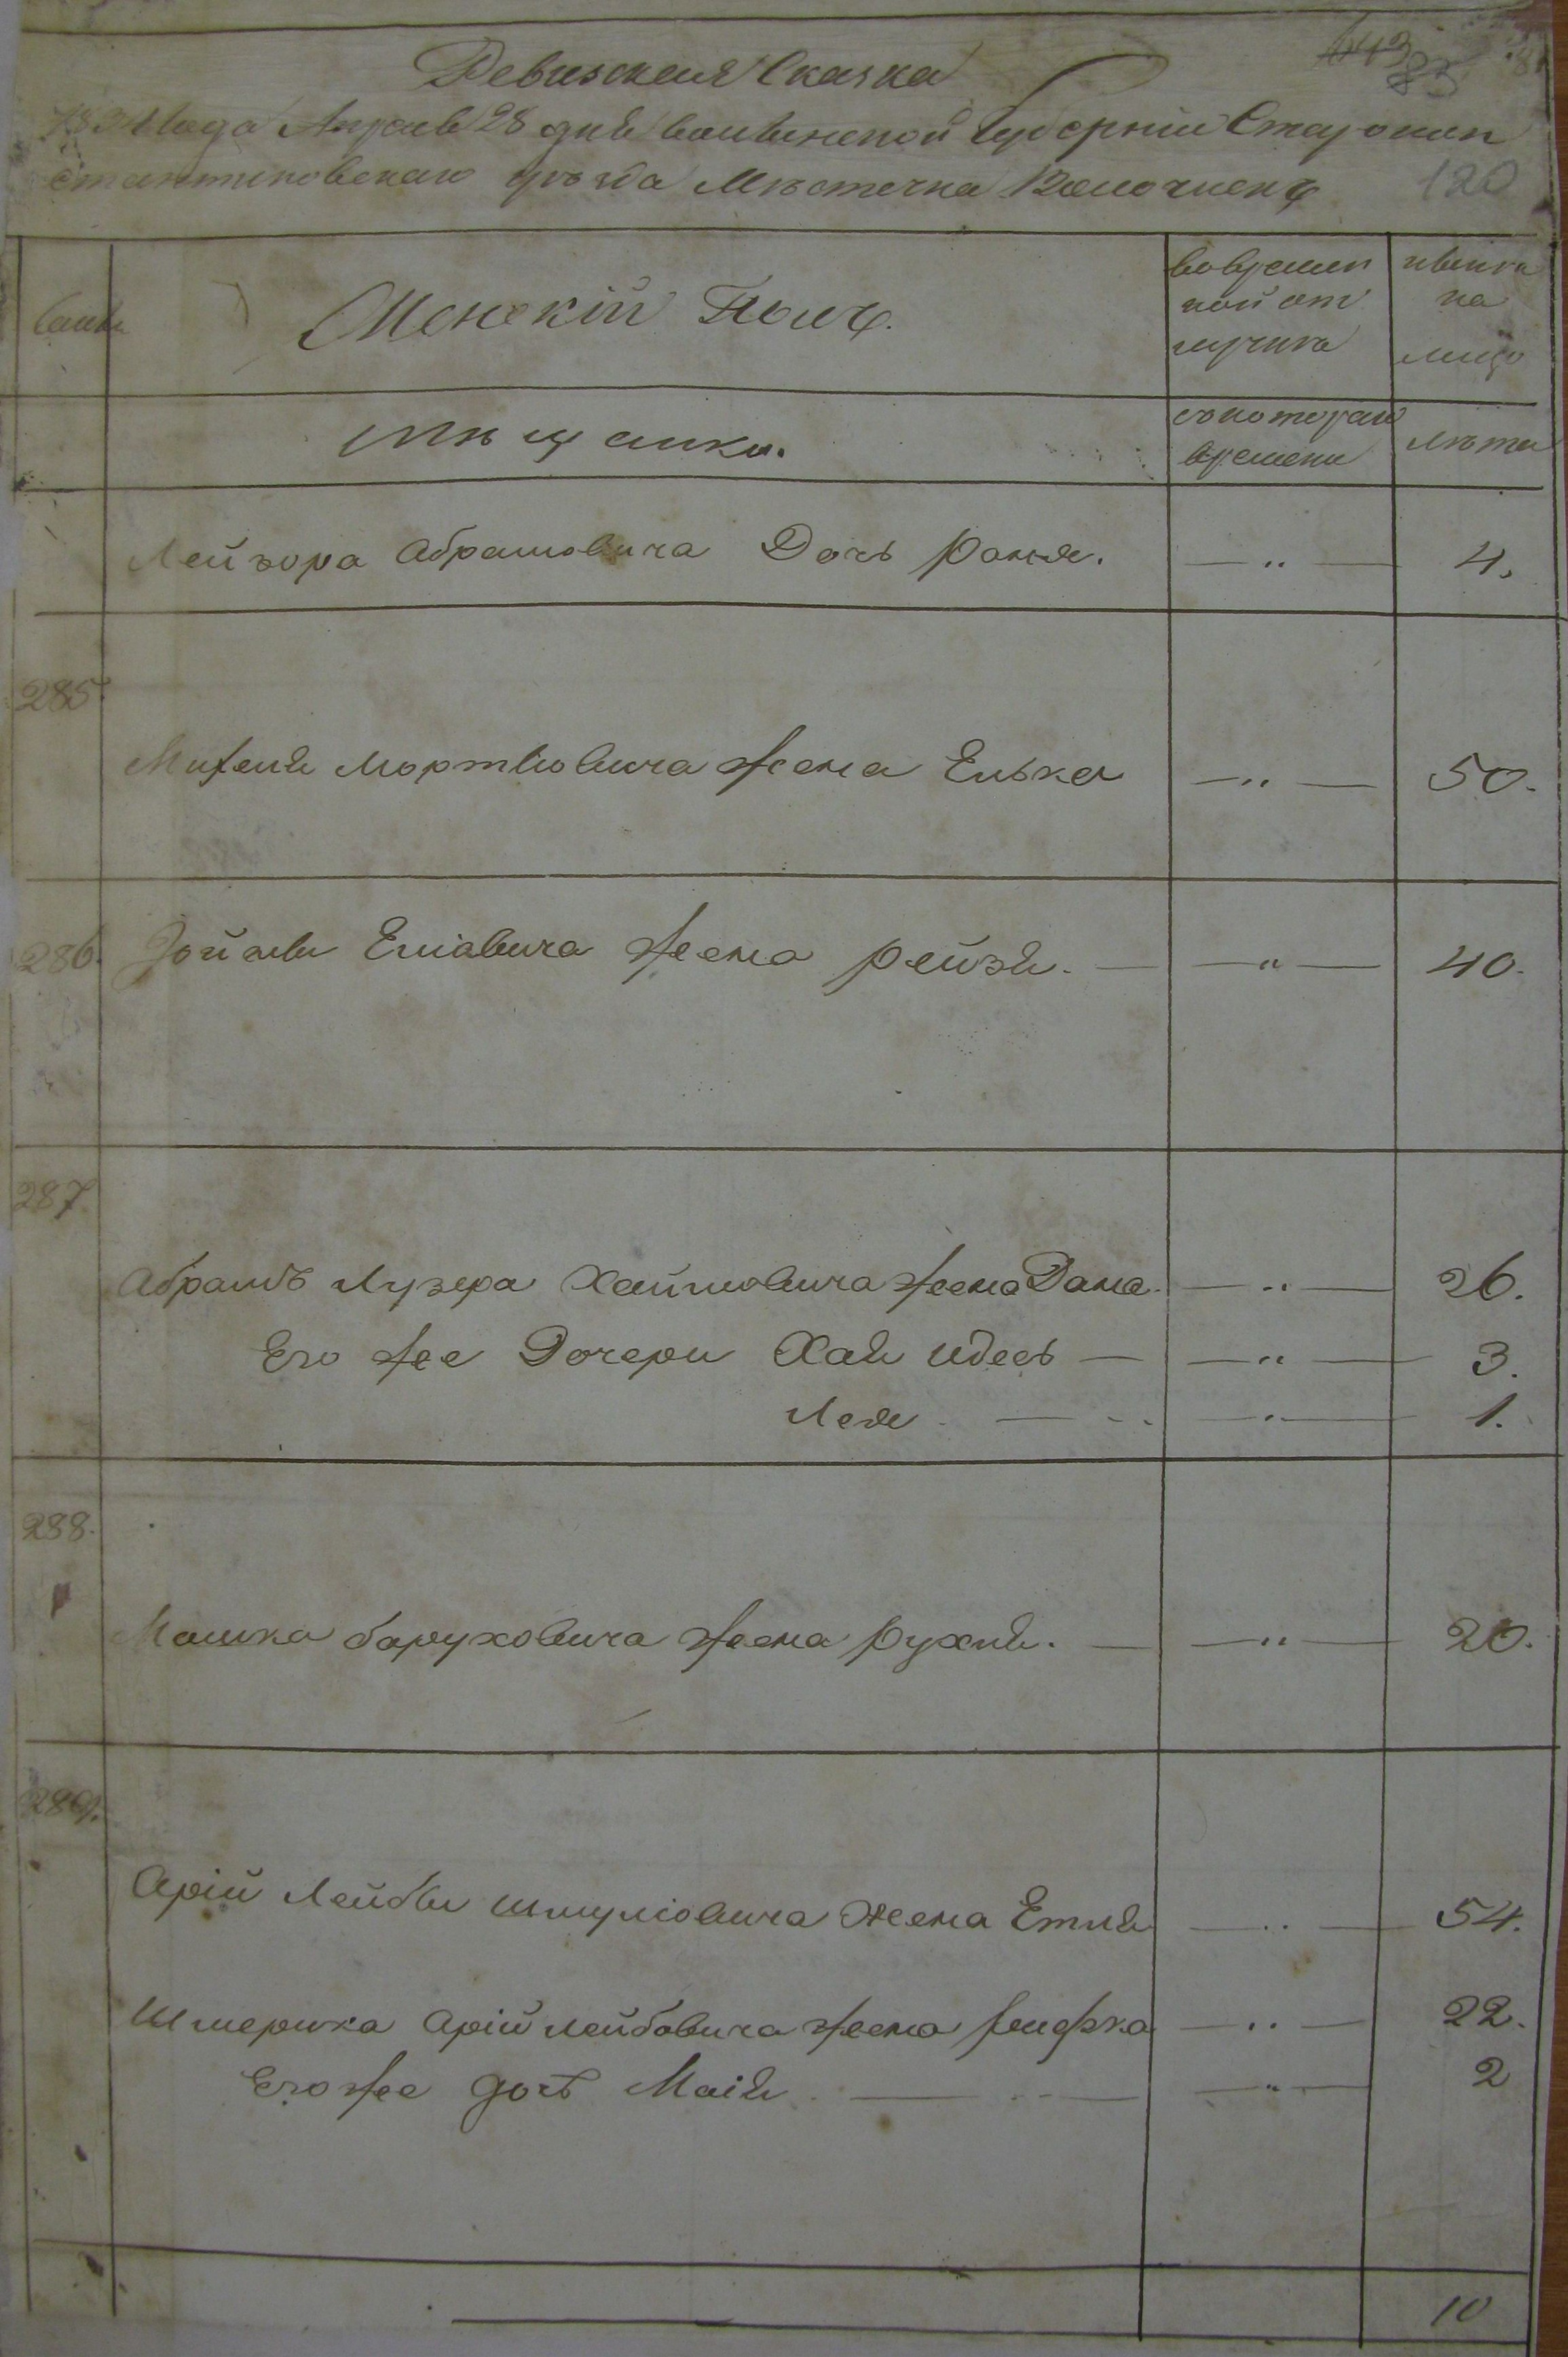 643
83
Ревизская Сказка
1834 года Апреля 28 дня Волынской Губернии Старокон
стантиновскаго уезда Местечка Волочискъ
120
Семьи
Женскій Полъ.
во времен
ной от
лучке
ныне
на
лицо
Мещанки.
съ котораго
времени
лета
Лейзора Абрамовича Дочь Рания. — " — 4.
285.
Михеля Мортковича жена Елька — " — 50.
286. Зойлы Еліовича жена Рейзя. — — " — 40.
287.
Абрамъ Лузера Хаимовича жена Дана. — " — 26.
Его же Дочери Хая Идесь — — " — 3.
Лея — — " — 1.
288.
Мошка Баруховича жена Рухля. — — " — 20.
289.
Арій Лейбы Шмулiовича Жена Етля — " — 54.
Шмерика Арій Лейбовича жена — " — 22.
Его же дочь Маія — — " — 2
10